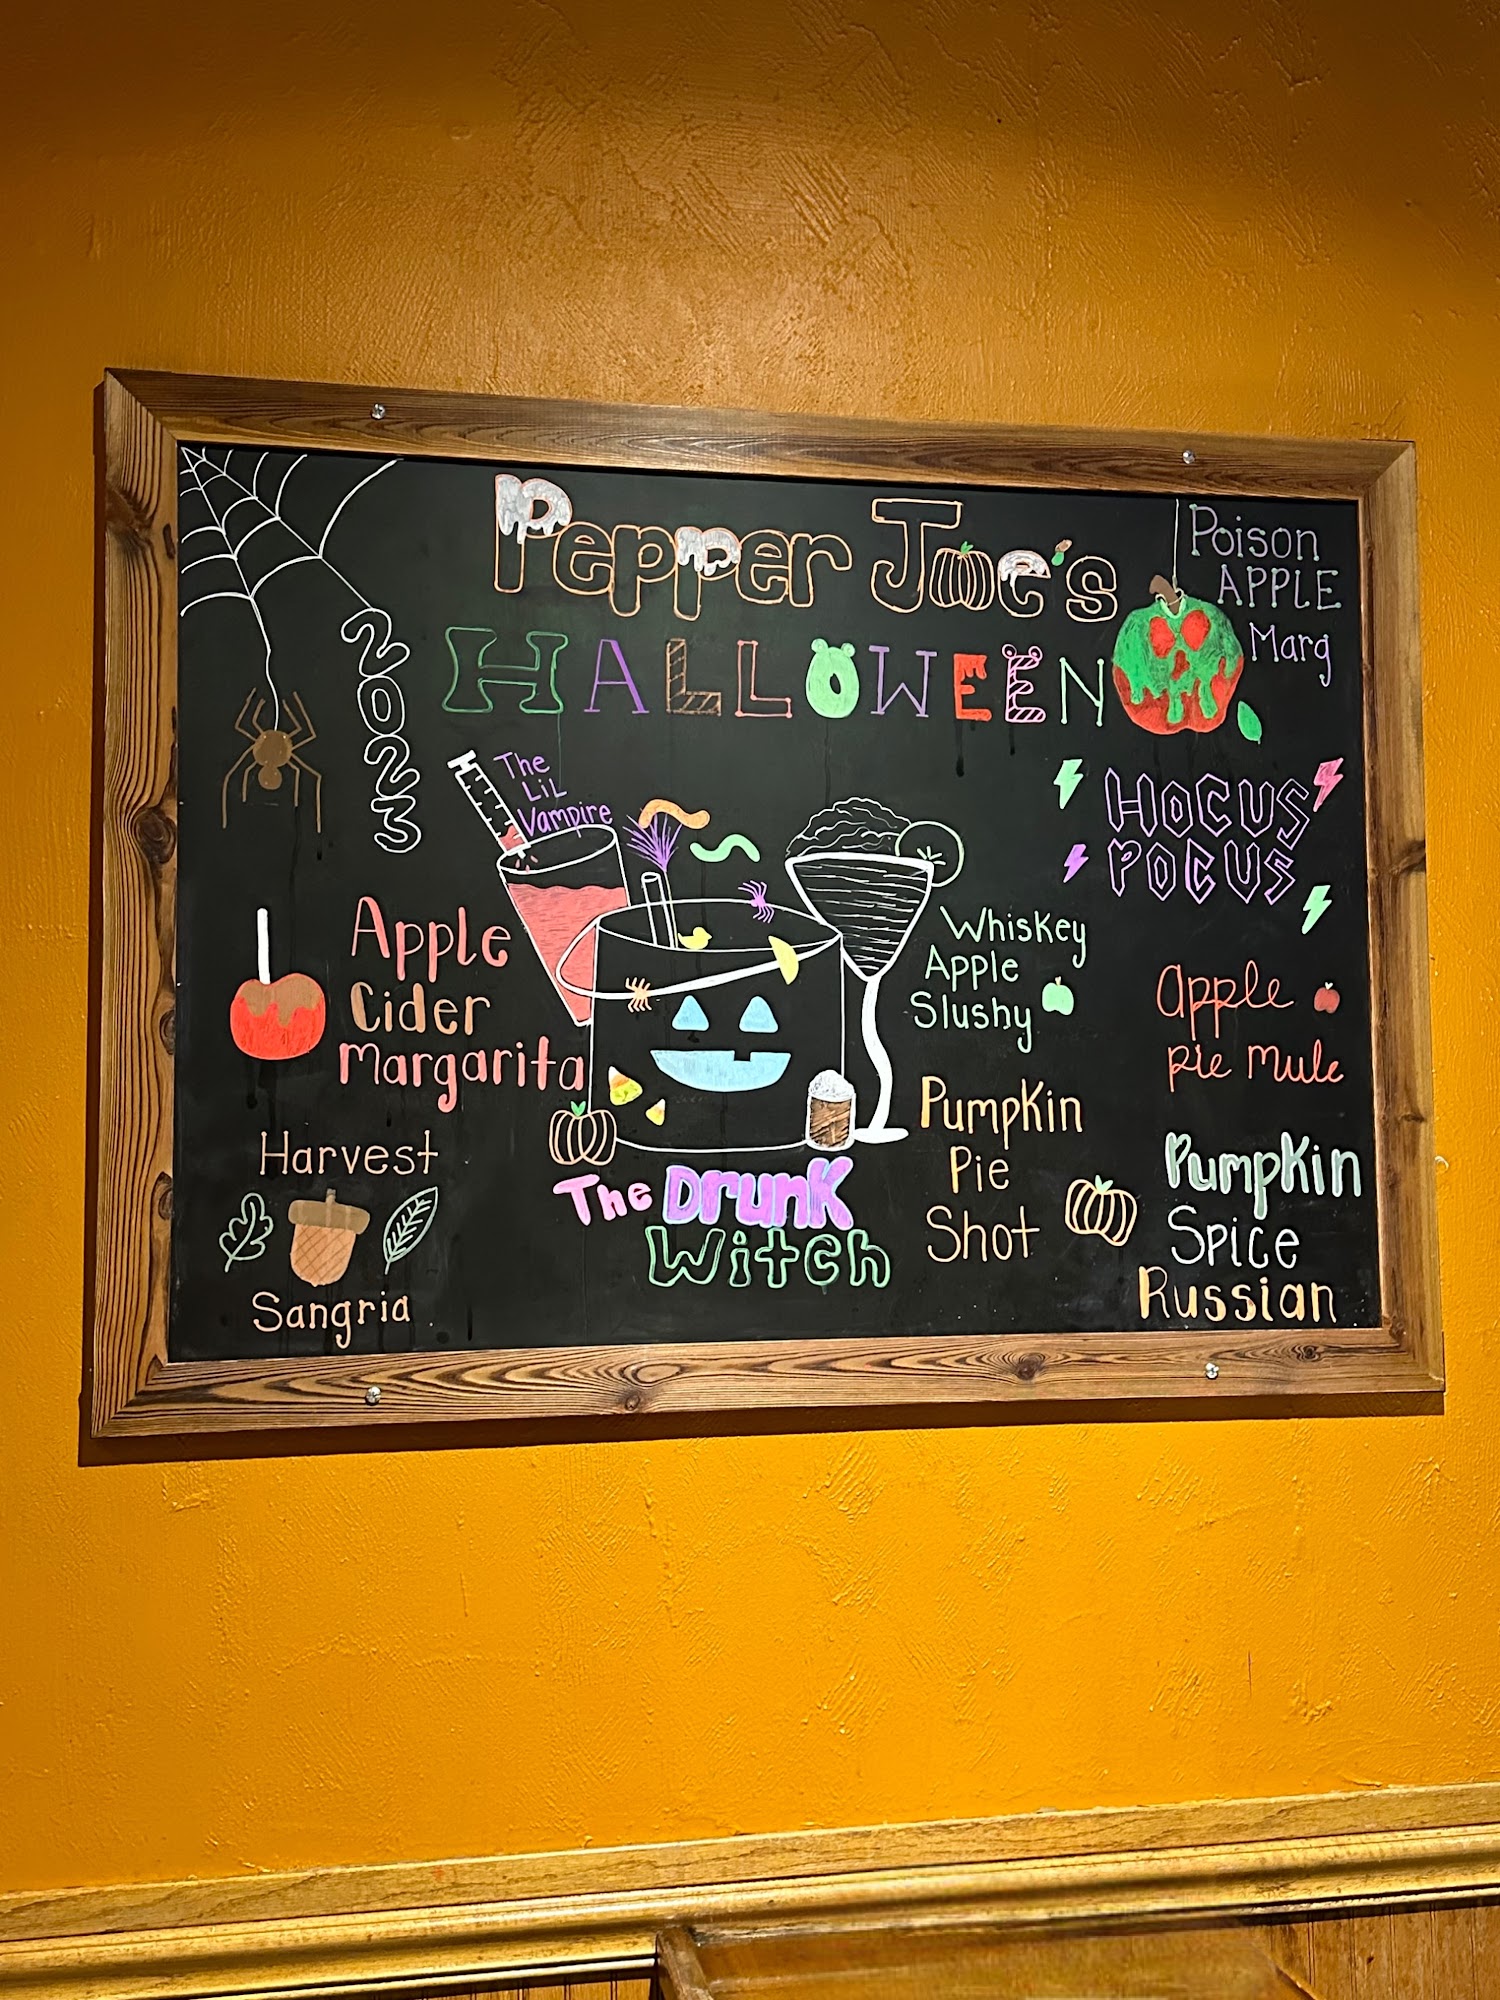 Pepper Joe's
HALLOWEEN
2023
Poison
APPLE
Marg
The
LiL
Vampire
HOCUS
POCUS
Apple
Cider
Margarita
Whiskey
Apple
Slushy
Apple
Pie Mule
Harvest
Sangria
The Drunk
Witch
Pumpkin
Pie
Shot
Pumpkin
Spice
Russian